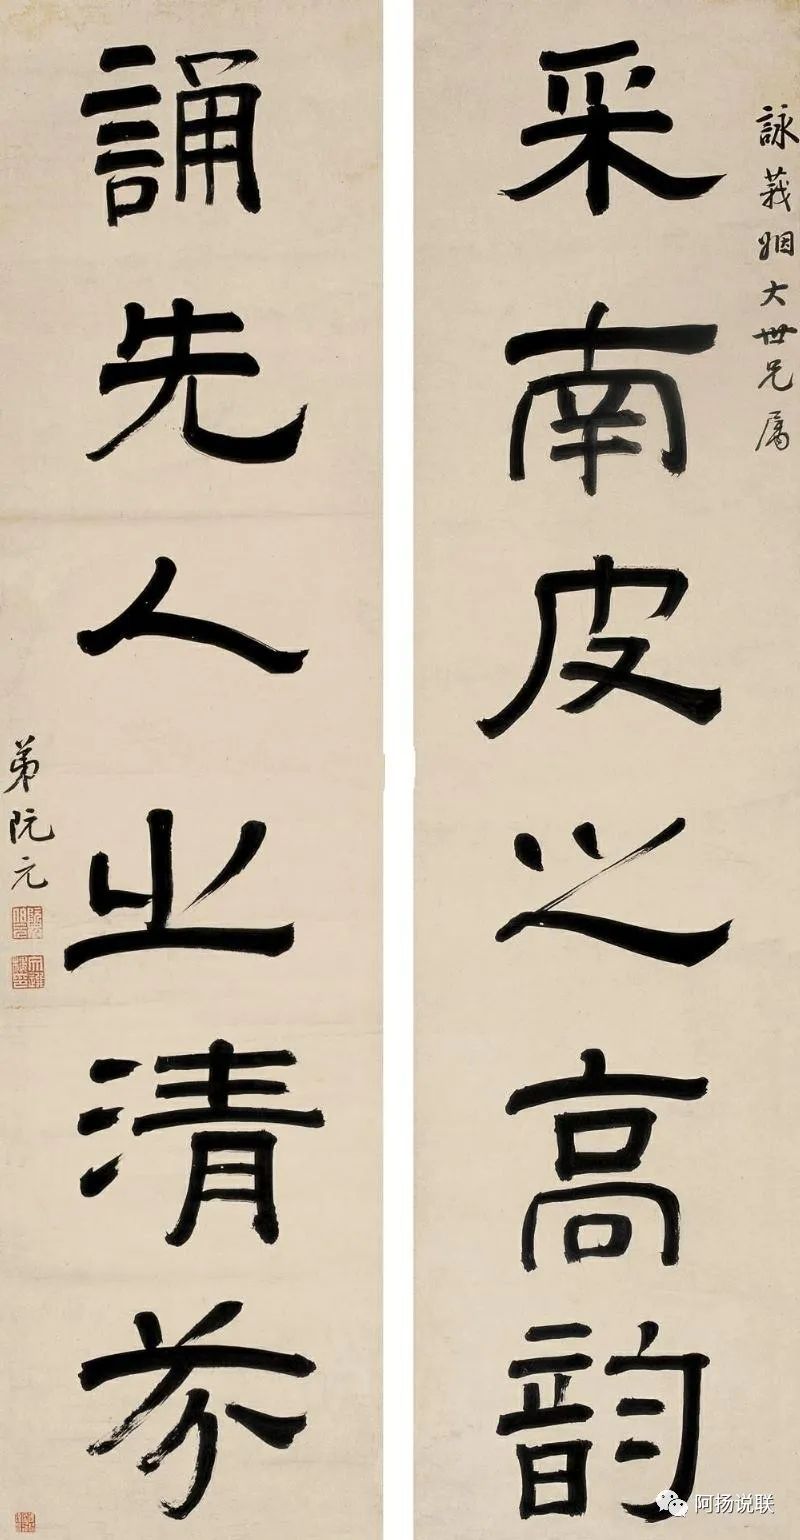 詠莪姻大世兄属
采南皮之高韵
誦先人之清芬
弟阮元
阿扬说联